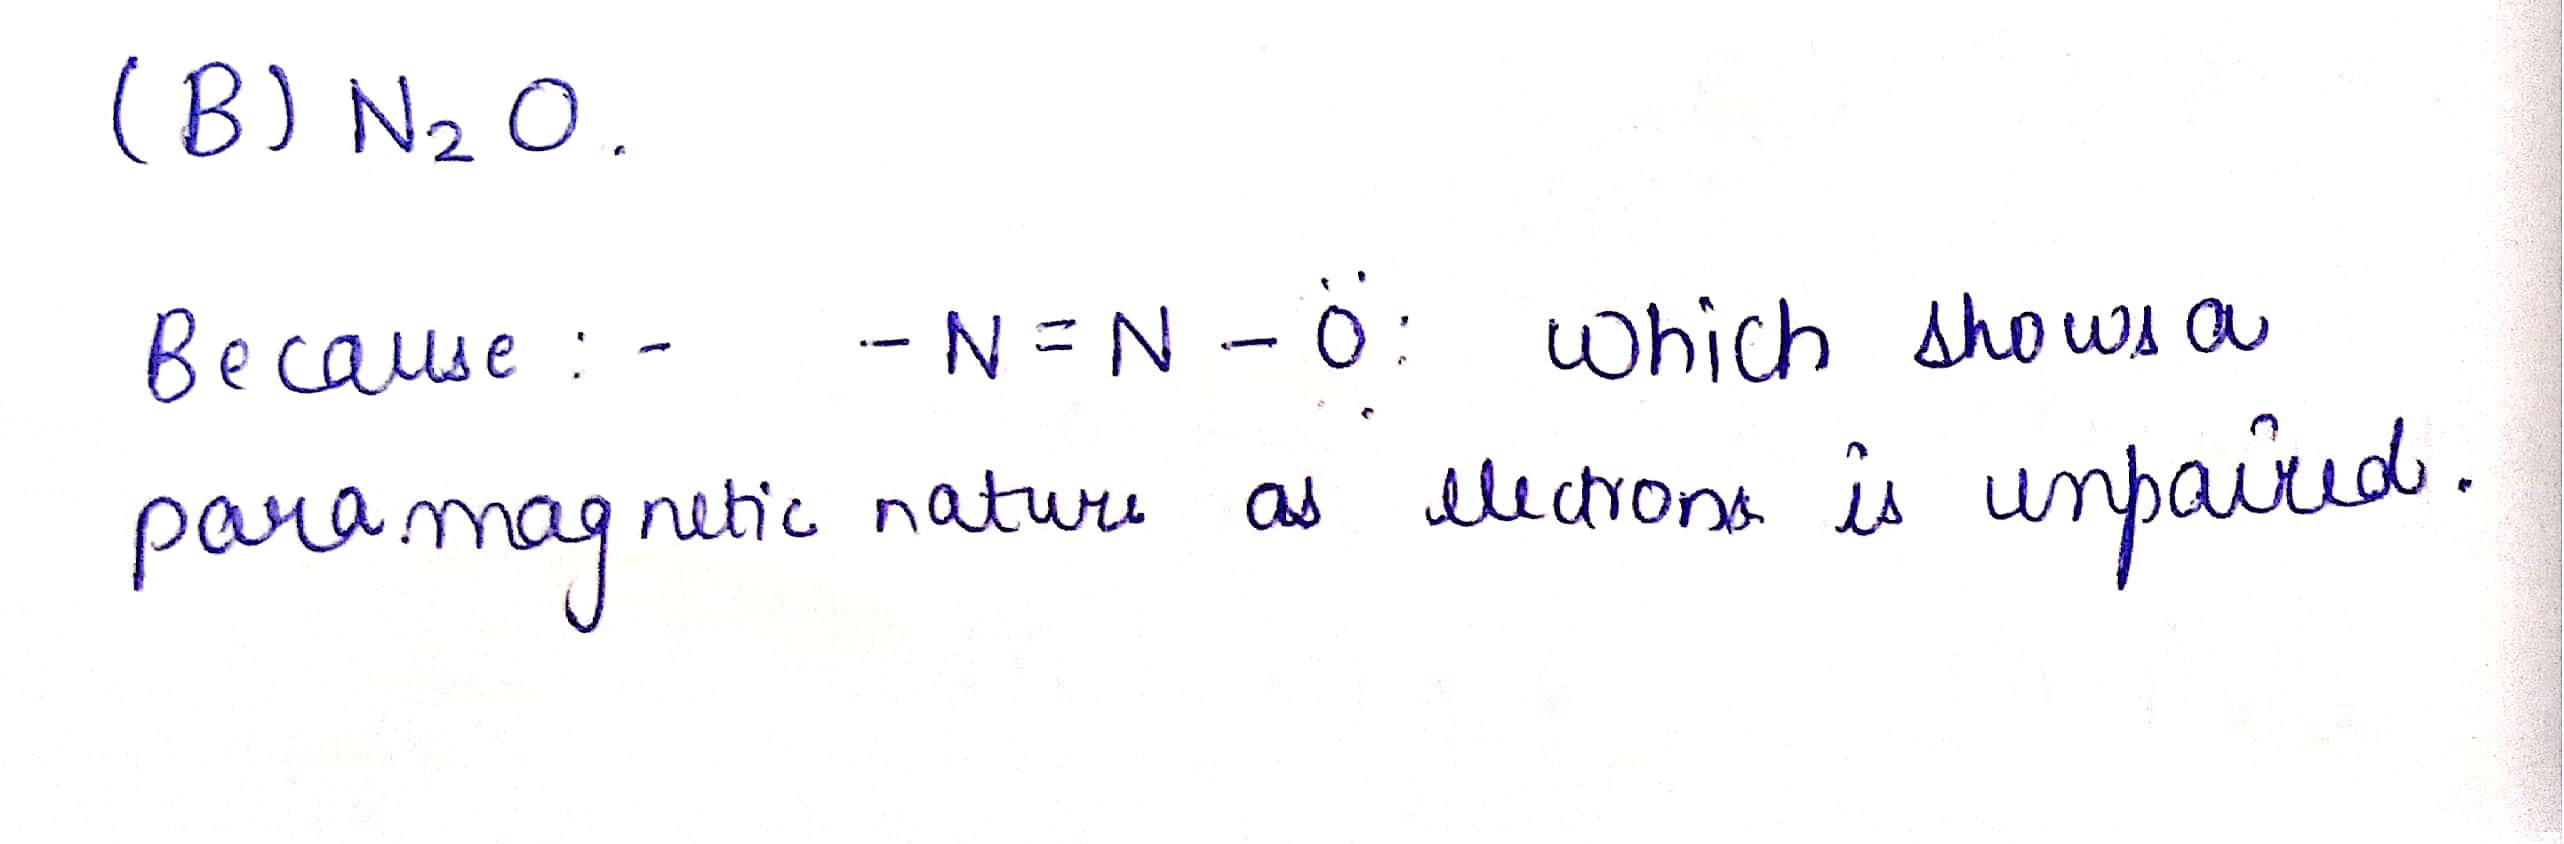 (B) N₂O.
Because :- -N=N-Ö: which shows a
paramagnetic nature as electrons is unpaired.